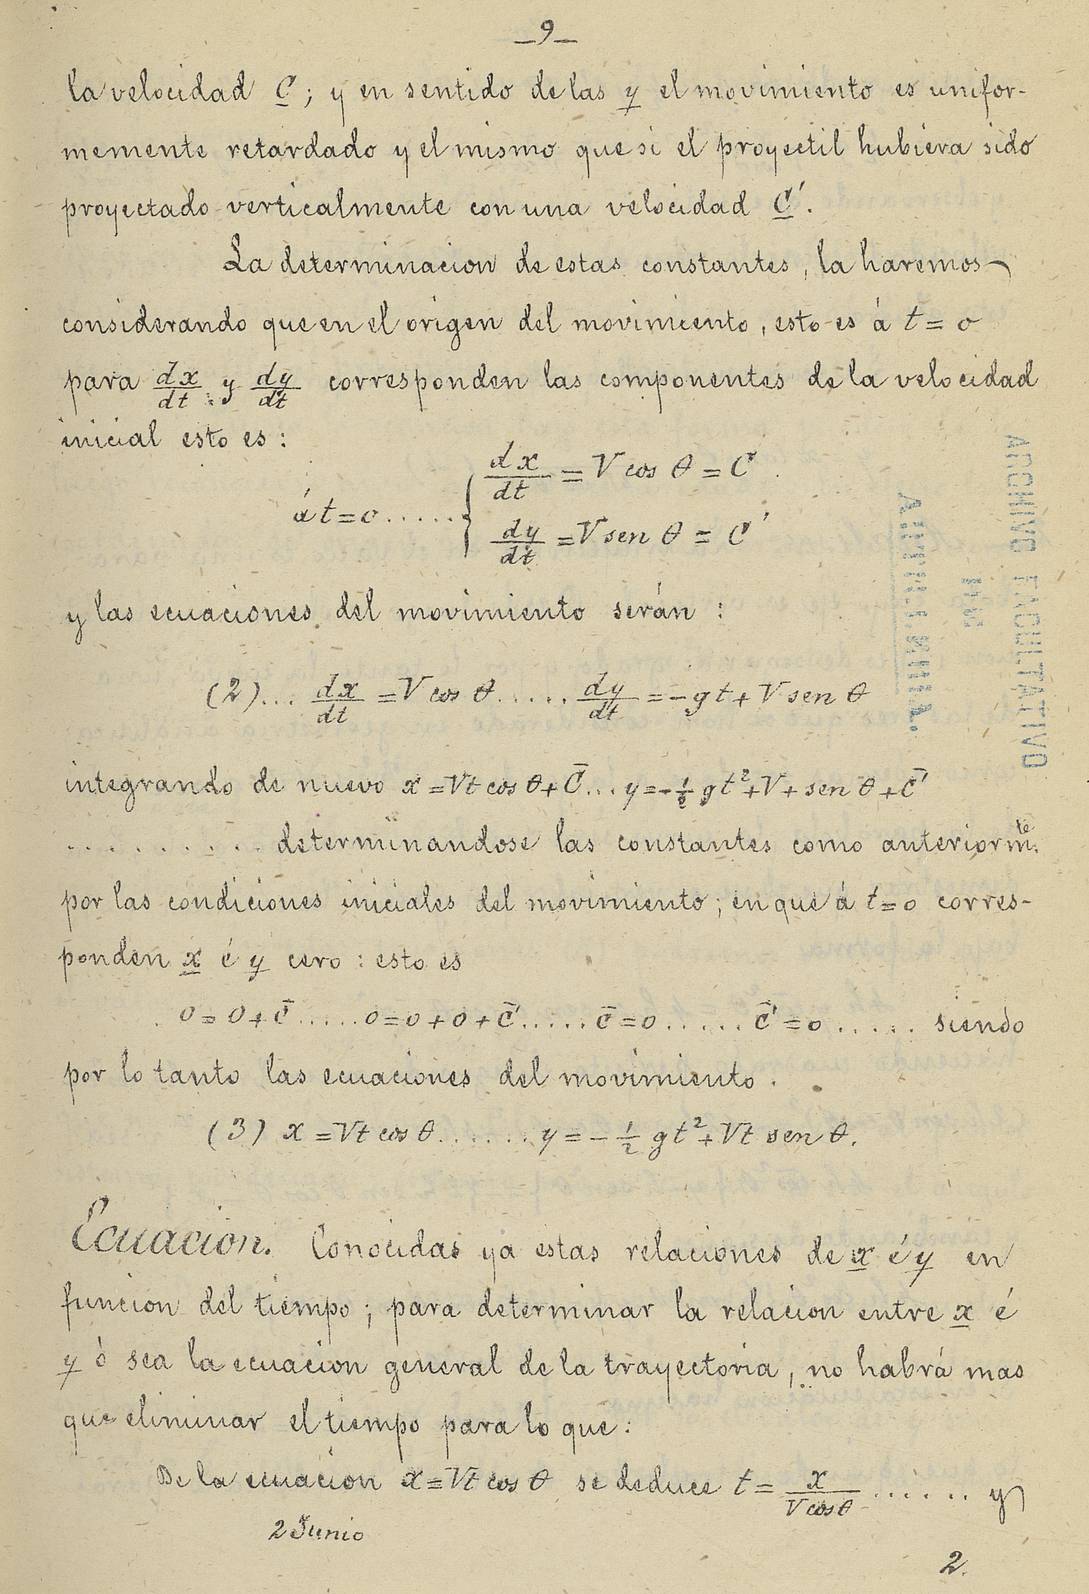 _9_
la velocidad C; y en sentido de las y el movimiento es unifor-
memente retardado y el mismo que si el proyectil hubiera sido
proyectado verticalmente con una velocidad C'.
La determinacion de estas constantes, la haremos
considerando que en el origen del movimiento, esto es á t = 0
para dx/dt y dy/dt corresponden las componentes de la velocidad
inicial esto es:
á t=0...... { dx/dt = V cos θ = C
dy/dt = V sen θ = C'
y las ecuaciones del movimiento serán:
(2)... dx/dt = V cos θ...... dy/dt = -gt + V sen θ
integrando de nuevo x = Vt cos θ + C̄... y = -½ gt² + V+ sen θ + C̄'
.......... determinandose las constantes como anteriormte.
por las condiciones iniciales del movimiento; en que á t=0 corres-
ponden x é y cero: esto es
0=0+C̄.....0=0+0+C̄'.....C̄=0......C̄'=0...... siendo
por lo tanto las ecuaciones del movimiento.
(3) x = Vt cos θ....... y = -½ gt² + Vt sen θ.
Ecuacion. Conocidas ya estas relaciones de x é y en
funcion del tiempo; para determinar la relacion entre x é
y ó sea la ecuacion general de la trayectoria, no habrá mas
que eliminar el tiempo para lo que:
De la ecuacion x = Vt cos θ se deduce t = x/V cos θ ...... y
2 Junio
2.
ARCHIVO FACULTATIVO
DE
ARTILLERIA.